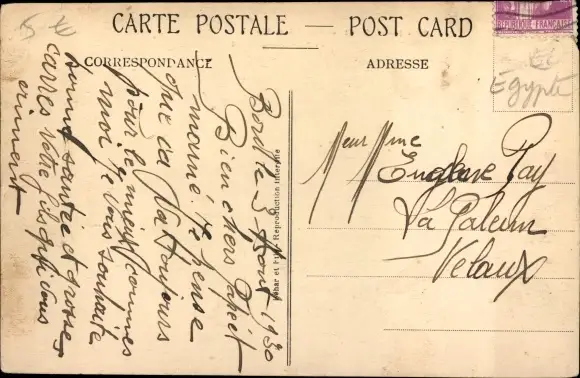 5 €
CARTE POSTALE — POST CARD
REPUBLIQUE FRANÇAISE
CORRESPONDANCE
ADRESSE
Egypte
Bord le 3 Aout 1930
Bien chers Papa et
mamé. Je pense
que ca va toujours
pour le mieux comme
moi je vous souhaite
bonne santée et grosses
carres votre fils qui vous
aiment
et Fils Reproduction Interdite
Meur Mme
Pay
La
Velaux